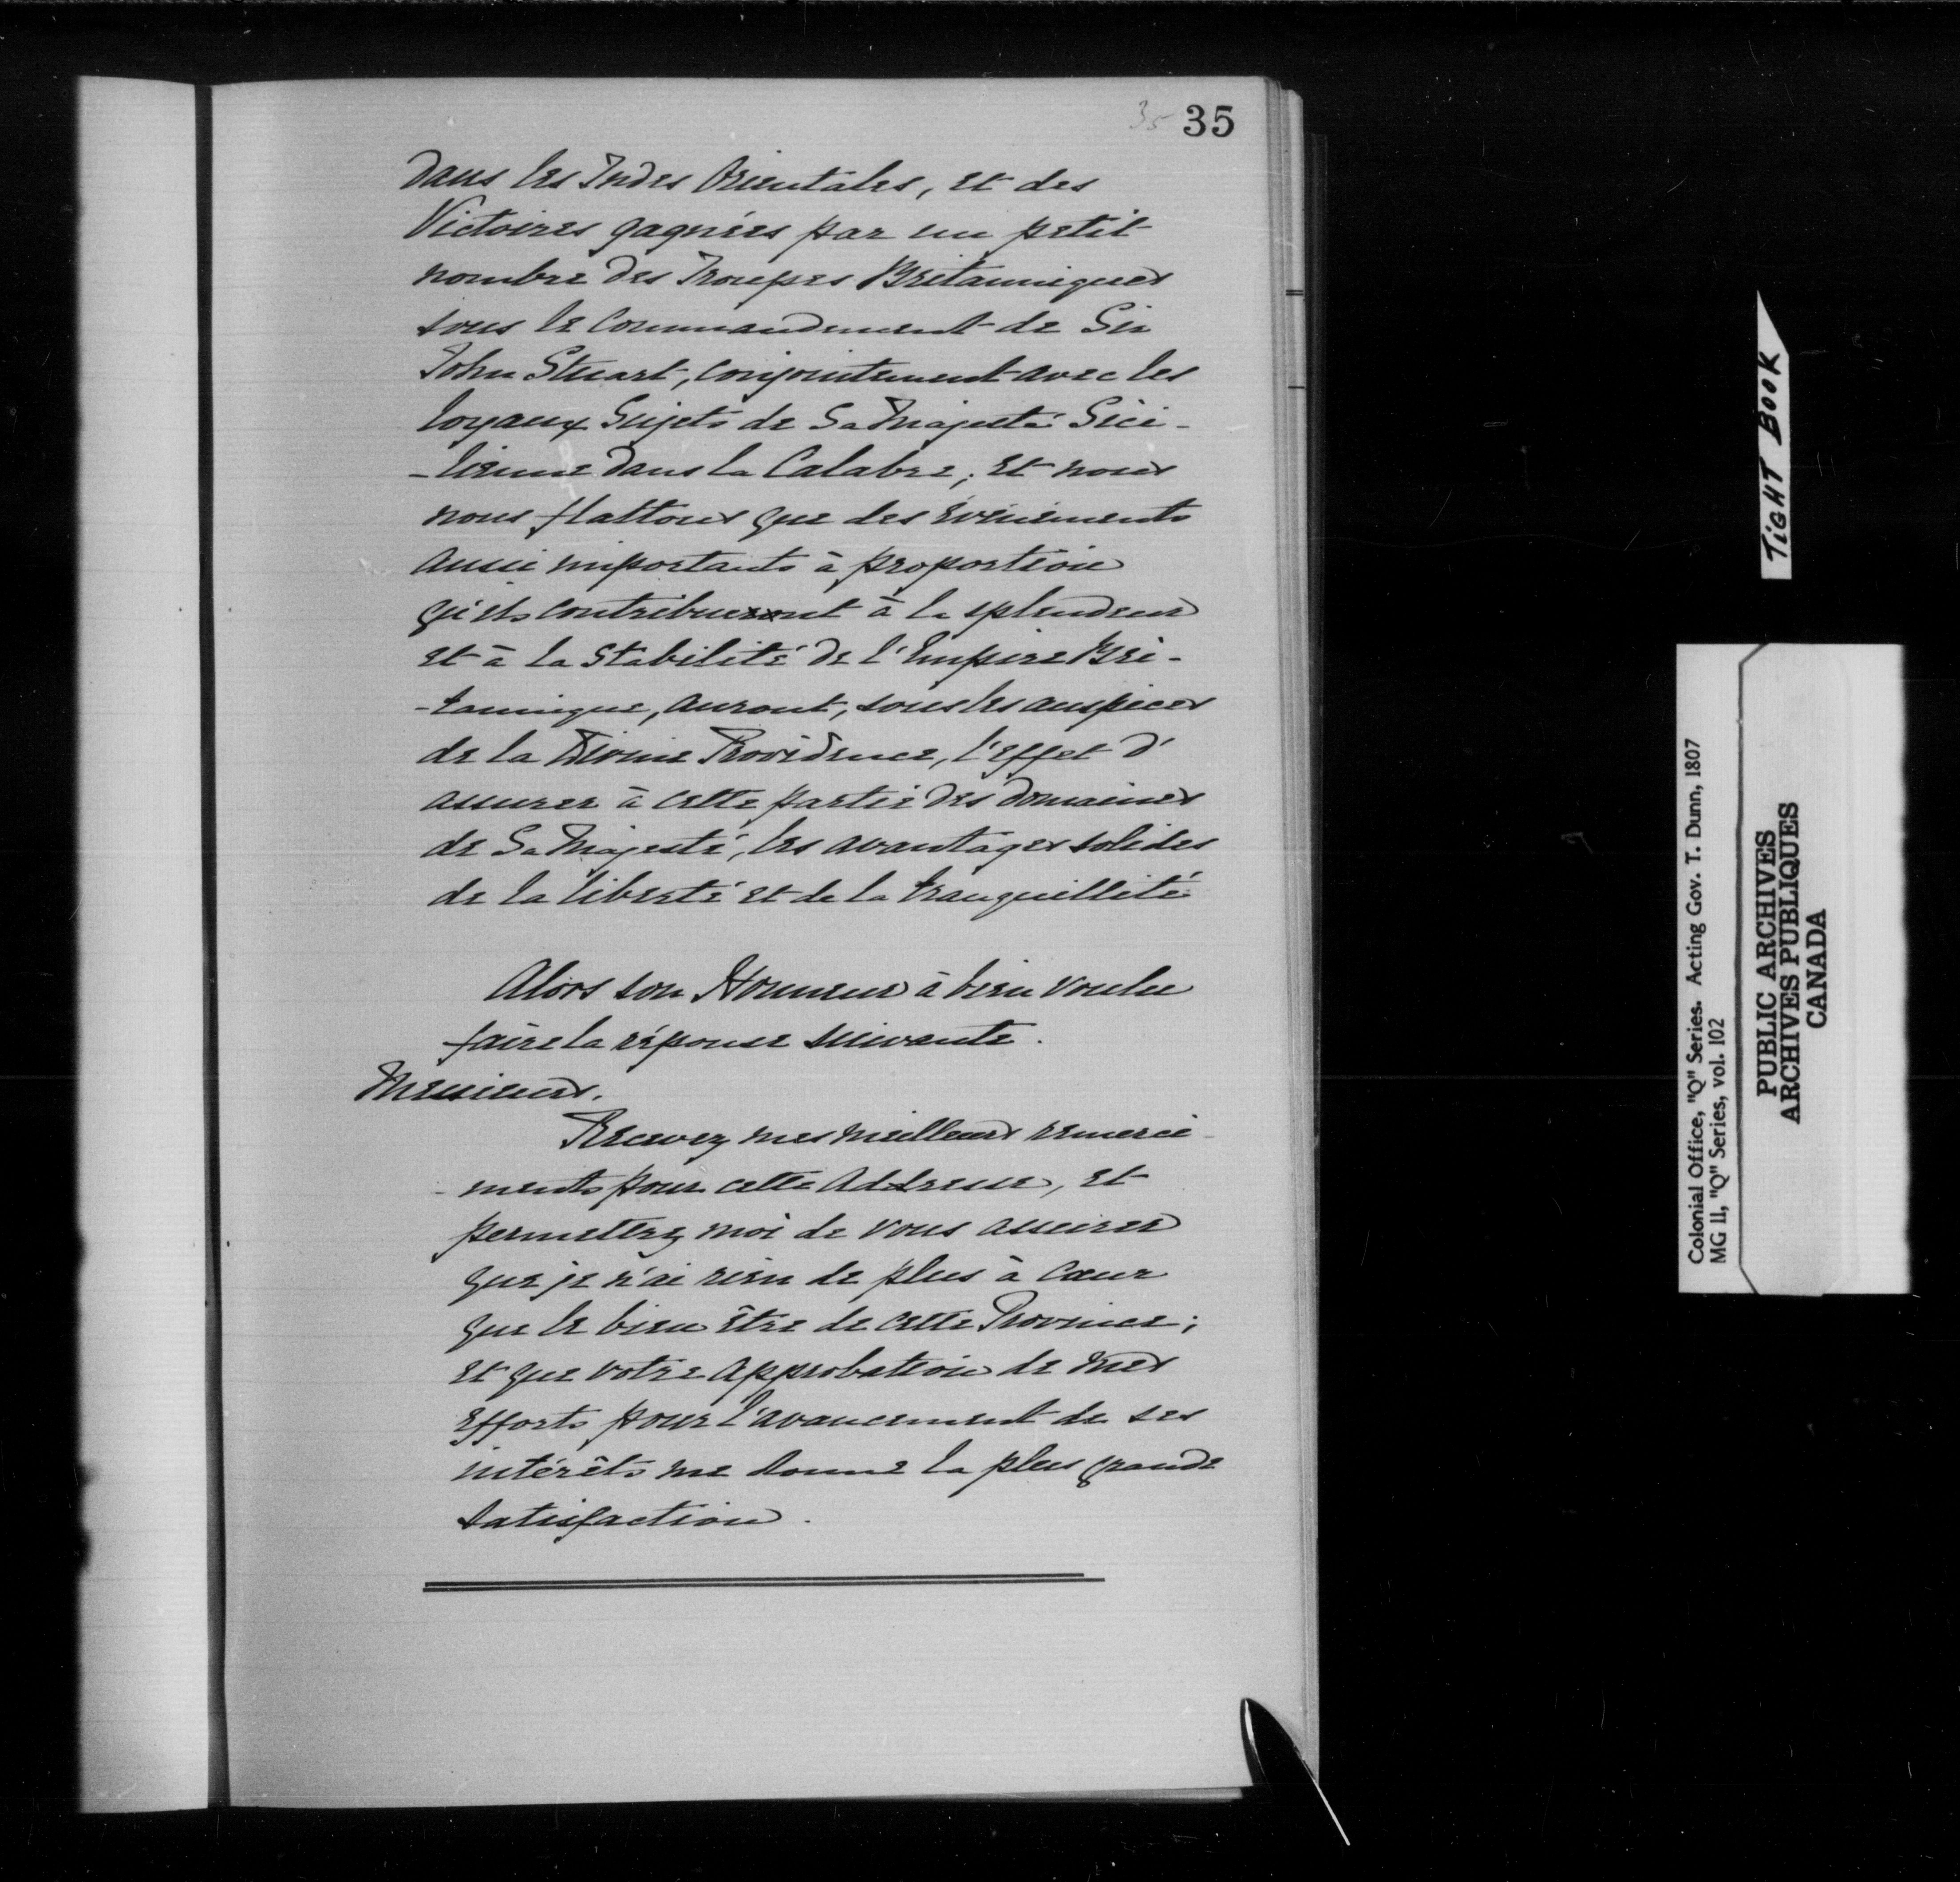 35 35
dans les Indes Orientales, et des
Victoires gagnées par un petit
nombre des Troupes Britanniques
sous le Commandement de Sir
John Stuart, conjointement avec les
loyaux Sujets de Sa Majesté Sici-
-lienne dans la Calabre; et nous
nous flattons que des événements
aussi importants à proportion
qu'ils contribueront à la splendeur
et à la stabilité de l'Empire Bri-
-tannique, auront, sous les auspices
de la Divine Providence, l'effet d'
assurer à cette partie des domaines
de Sa Majesté, les avantages solides
de la liberté et de la tranquillité
Alors son Honneur à bien voulu
faire la réponse suivante.
Messieurs.
Recevez mes meilleurs remercie
-ments pour cette Addresse, et
permettez moi de vous assurer
que je n'ai rien de plus à cœur
que le bien être de cette Province;
et que votre approbation de mes
efforts pour l'avancement de ses
intérêts me donne la plus grande
satisfaction.
TIGHT BOOK
Colonial Office, "Q" Series. Acting Gov. T. Dunn, 1807
MG 11, "Q" Series, vol. 102
PUBLIC ARCHIVES
ARCHIVES PUBLIQUES
CANADA